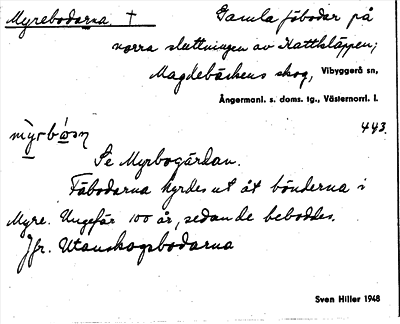 Myrebodarna † Gamla fäbodar på
norra sluttningen av Kattkläppen;
Magdebäckens skog, Vibyggerå sn,
Ångermanl. s. doms. tg., Västernorrl. l.
443.
Se Myrbogärdan.
Fäbodarna hyrdes ut åt bönderna i
Myre. Ungefär 100 år, sedan de beboddes.
Jfr. Utanskogsbodarna
Sven Hiller 1948